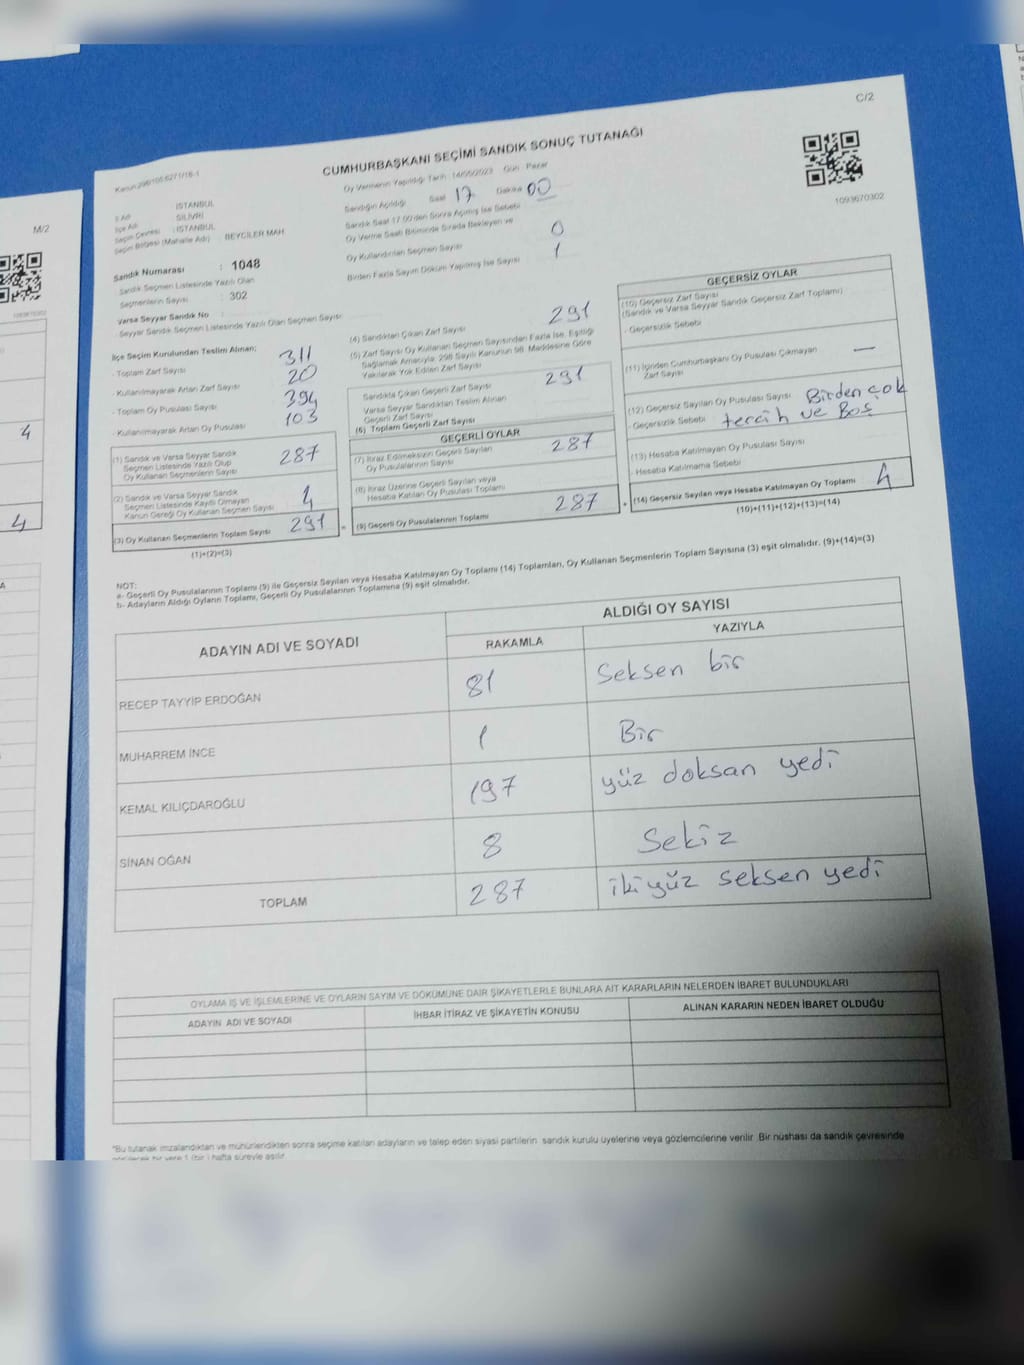 C/2
CUMHURBAŞKANI SEÇİMİ SANDIK SONUÇ TUTANAĞI
Oy Vermenin Yapıldığı Tarih : 14/05/2023 Gün : Pazar
Sandığın Açıldığı Saat 17 Dakika 00
Sandık Saat 17.00'den Sonra Açılmış İse Sebebi
Oy Verme Saati Bitiminde Sırada Bekleyen ve
Oy Kullandırılan Seçmen Sayısı 0
Birden Fazla Sayım Döküm Yapılmış İse Sayısı 1
1093670302
İl Adı : İSTANBUL
İlçe Adı : SİLİVRİ
Seçim Çevresi : İSTANBUL
Seçim Bölgesi (Mahalle Adı) : BEYCİLER MAH
Sandık Numarası : 1048
Sandık Seçmen Listesinde Yazılı Olan
Seçmenlerin Sayısı : 302
Varsa Seyyar Sandık No
Seyyar Sandık Seçmen Listesinde Yazılı Olan Seçmen Sayısı
İlçe Seçim Kurulundan Teslim Alınan;
- Toplam Zarf Sayısı 311
- Kullanılmayarak Artan Zarf Sayısı 20
- Toplam Oy Pusulası Sayısı 394
- Kullanılmayarak Artan Oy Pusulası 103
(1) Sandık ve Varsa Seyyar Sandık
Seçmen Listesinde Yazılı Olup
Oy Kullanan Seçmenlerin Sayısı 287
(2) Sandık ve Varsa Seyyar Sandık
Seçmen Listesinde Kayıtlı Olmayan
Kanun Gereği Oy Kullanan Seçmen Sayısı 4
(3) Oy Kullanan Seçmenlerin Toplam Sayısı 291
(1)+(2)=(3)
(4) Sandıktan Çıkan Zarf Sayısı 291
(5) Zarf Sayısı Oy Kullanan Seçmen Sayısından Fazla İse, Eşitliği
Sağlamak Amacıyla; 298 Sayılı Kanunun 98. Maddesine Göre
Yakılarak Yok Edilen Zarf Sayısı
Sandıkta Çıkan Geçerli Zarf Sayısı 291
Varsa Seyyar Sandıktan Teslim Alınan
Geçerli Zarf Sayısı
(6) Toplam Geçerli Zarf Sayısı
GEÇERLİ OYLAR
(7) İtiraz Edilmeksizin Geçerli Sayılan
Oy Pusulalarının Sayısı 287
(8) İtiraz Üzerine Geçerli Sayılan veya
Hesaba Katılan Oy Pusulası Toplamı
= (9) Geçerli Oy Pusulalarının Toplamı 287
GEÇERSİZ OYLAR
(10) Geçersiz Zarf Sayısı
(Sandık ve Varsa Seyyar Sandık Geçersiz Zarf Toplamı)
- Geçersizlik Sebebi
(11) İçinden Cumhurbaşkanı Oy Pusulası Çıkmayan
Zarf Sayısı —
(12) Geçersiz Sayılan Oy Pusulası Sayısı Birden çok
- Geçersizlik Sebebi tercih ve Boş
(13) Hesaba Katılmayan Oy Pusulası Sayısı
- Hesaba Katılmama Sebebi
+ (14) Geçersiz Sayılan veya Hesaba Katılmayan Oy Toplamı 4
(10)+(11)+(12)+(13)=(14)
NOT:
a- Geçerli Oy Pusulalarının Toplamı (9) ile Geçersiz Sayılan veya Hesaba Katılmayan Oy Toplamı (14) Toplamları, Oy Kullanan Seçmenlerin Toplam Sayısına (3) eşit olmalıdır. (9)+(14)=(3)
b- Adayların Aldığı Oyların Toplamı, Geçerli Oy Pusulalarının Toplamına (9) eşit olmalıdır.
ADAYIN ADI VE SOYADI
ALDIĞI OY SAYISI
RAKAMLA YAZIYLA
RECEP TAYYİP ERDOĞAN 81 Seksen bir
MUHARREM İNCE 1 Bir
KEMAL KILIÇDAROĞLU 197 yüz doksan yedi
SİNAN OĞAN 8 Sekiz
TOPLAM 287 ikiyüz seksen yedi
OYLAMA İŞ VE İŞLEMLERİNE VE OYLARIN SAYIM VE DÖKÜMÜNE DAİR ŞİKAYETLERLE BUNLARA AİT KARARLARIN NELERDEN İBARET BULUNDUKLARI
ADAYIN ADI VE SOYADI İHBAR İTİRAZ VE ŞİKAYETİN KONUSU ALINAN KARARIN NEDEN İBARET OLDUĞU
*Bu tutanak imzalandıktan ve mühürlendikten sonra seçime katılan adayların ve talep eden siyasi partilerin sandık kurulu üyelerine veya gözlemcilerine verilir. Bir nüshası da sandık çevresinde
görülecek bir yere 1 (bir) hafta süreyle asılır.
M/2
4
4